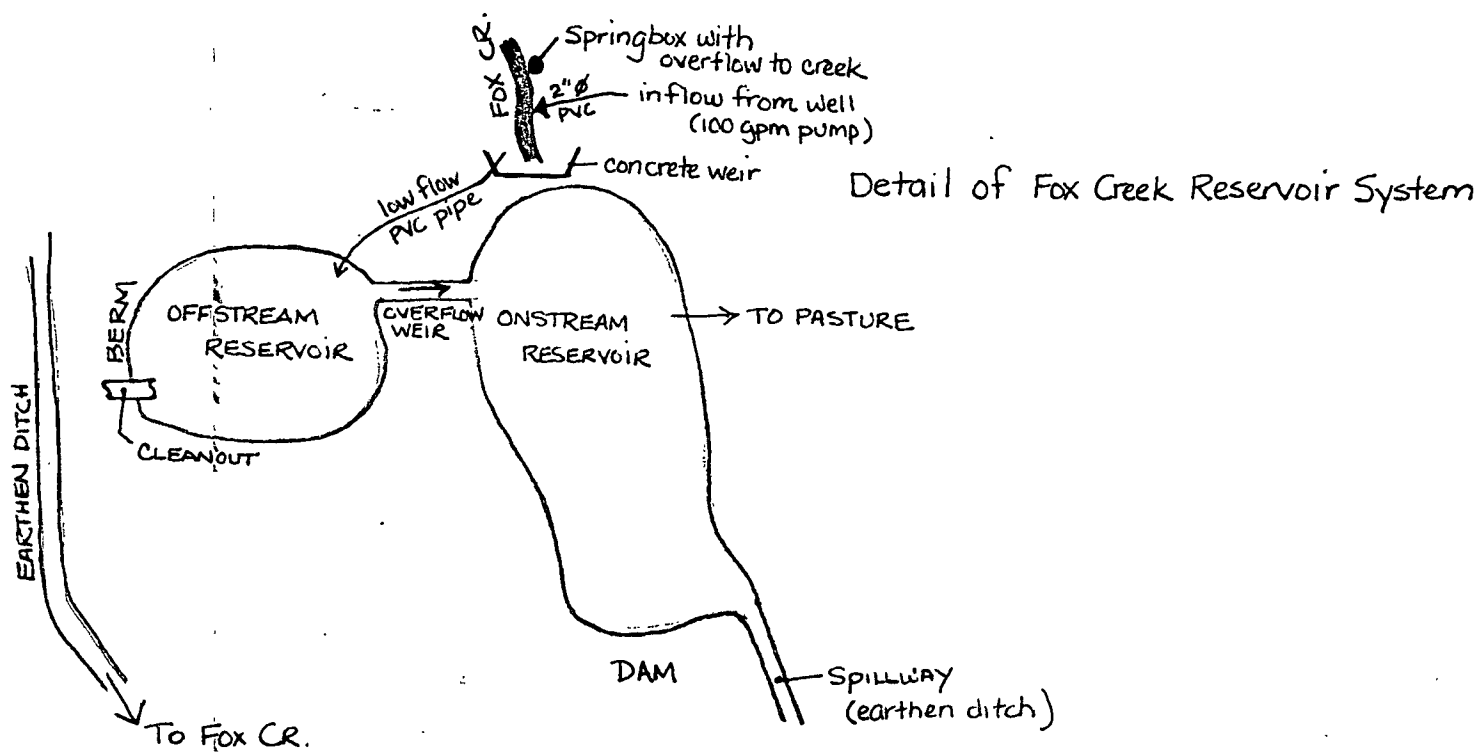 FOX CR.
Springbox with
overflow to creek
2"Ø
PVC
inflow from well
(100 gpm pump)
concrete weir
Detail of Fox Creek Reservoir System
low flow
PVC pipe
BERM
OFFSTREAM
RESERVOIR
OVERFLOW
WEIR
ONSTREAM
RESERVOIR
TO PASTURE
EARTHEN DITCH
CLEANOUT
DAM
SPILLWAY
(earthen ditch)
To Fox CR.